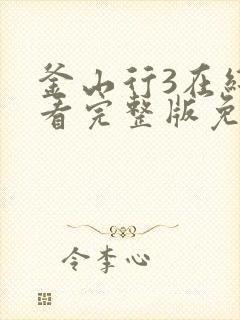 釜山行3在线
看完整版免
令李心